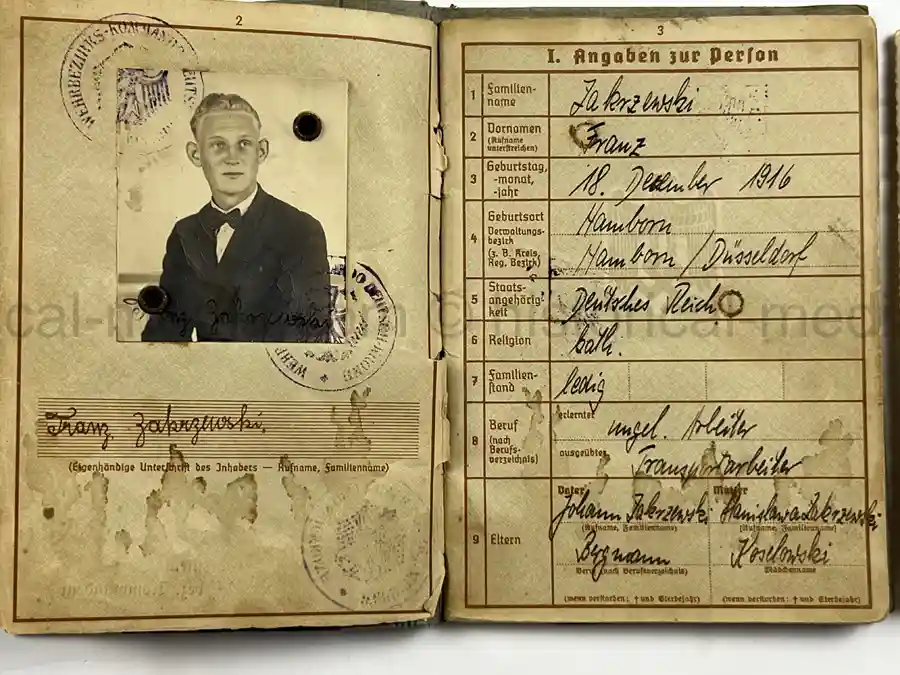 2
WEHRBEZIRKS-KOMMANDO
Franz Zakrzewski
Franz Zakrzewski.
(Eigenhändige Unterschrift des Inhabers — Rufname, Familienname)
3
I. Angaben zur Person
1 Familien-
name
Zakrzewski
2 Vornamen
(Rufname
unterstreichen)
Franz
3 Geburtstag,
-monat,
-jahr
18. Dezember 1916
4 Geburtsort
Verwaltungs-
bezirk
(z. B. Kreis,
Reg. Bezirk)
Hamborn
Hamborn / Düsseldorf
5 Staats-
angehörig-
keit
Deutsches Reich
6 Religion
kath.
7 Familien-
stand
ledig
8 Beruf
(nach
Berufs-
verzeichnis)
erlernter
ungel. Arbeiter
ausgeübter
Transportarbeiter
9 Eltern
Vater Mutter
Johann Zakrzewski Stanislawa Zakrzewski
(Rufname, Familienname) (Rufname, Familienname)
Bergmann Koselowski
Beruf (nach Berufsverzeichnis) Mädchenname
(wenn verstorben: † und Sterbejahr) (wenn verstorben: † und Sterbejahr)